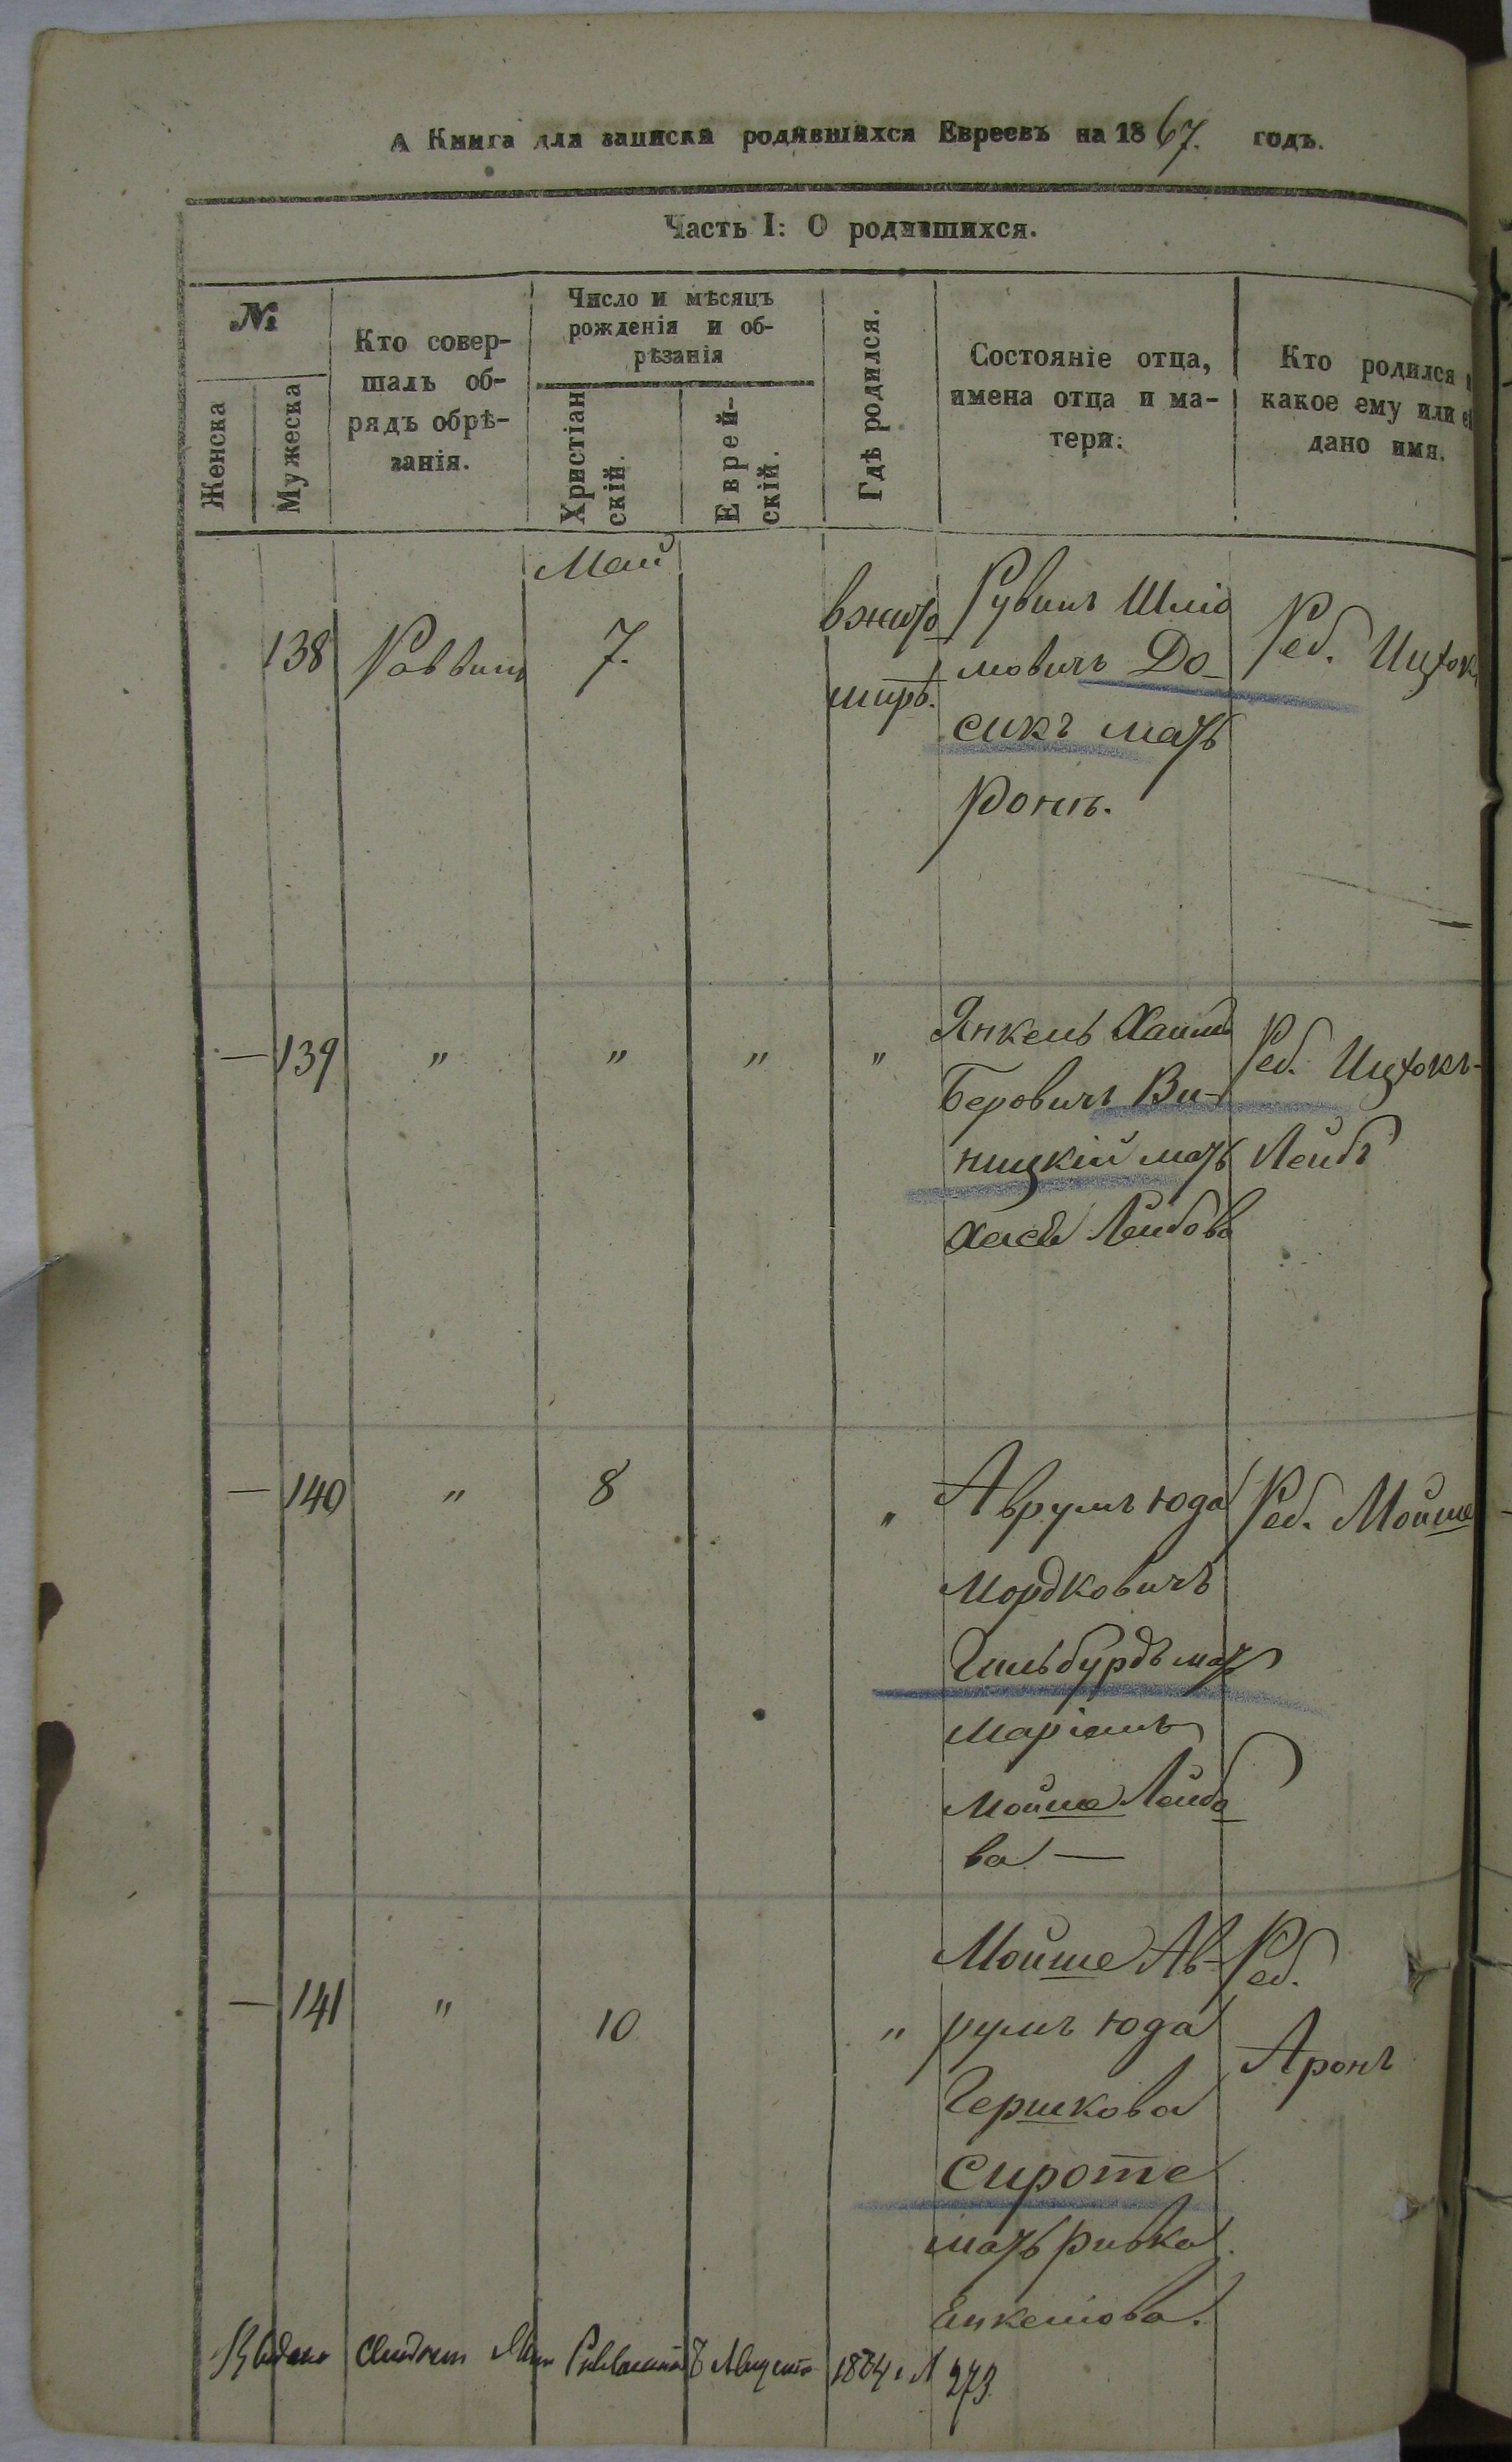 А Книга для записки родившихся Евреевъ на 1867. годъ.
Часть I: О родившихся.
№
Женска
Мужеска
Кто совер-
шалъ об-
рядъ обрѣ-
занія.
Число и мѣсяцъ
рожденія и об-
рѣзанія
Христіан
скій.
Еврей-
скій.
Гдѣ родился.
Состояніе отца,
имена отца и ма-
тери.
Кто родился
какое ему или
дано имя.
Май
138 Раввинъ 7.
въ жито
миръ.
Рувинъ Шліо
мовичъ До-
сикъ мать
Роня.
Реб. Ицхокъ
— 139 " " " "
Янкель Хаимъ
Беровичъ Ви-
ницкій мать
Хася Лейбова
Реб. Ицхокъ-
Лейбъ
— 140 " 8 "
Аврумъ Юда
Мордковичъ
Гильбурдъ мать
Маріямъ
Мойше Лейбо
ва —
Реб. Мойше
— 141 " 10 "
Мойше Ав-
румъ Юда
Гершкова
Сироте
мать Ривка
Енкелова.
Реб.
Аронъ
8 Августа 1874 г. № 273